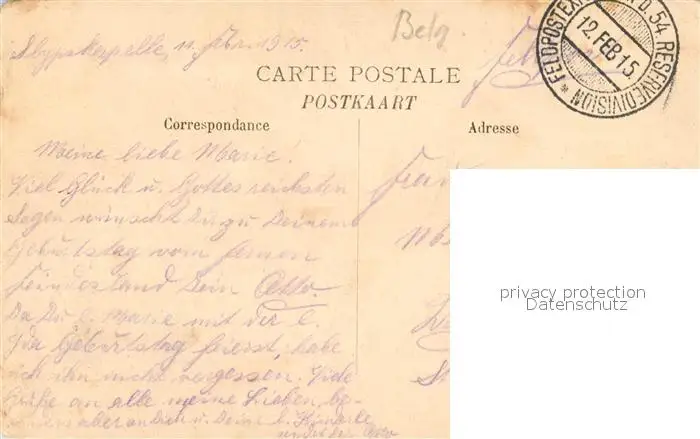 Belg.
Slypskapelle, 11. Febr. 1915.
Feldp
FELDPOSTEXP. D. 54 RESERVEDIVISION
12. FEB 15
CARTE POSTALE
POSTKAART
Correspondance
Adresse
Meine liebe Marie!
Viel Glück u. Gottes reichsten
Segen wünscht Dir zu Deinem
Geburtstag vom fernen
Feindesland Dein Otto.
Da Du l. Marie mit der l.
Ida Geburtstag feierst, habe
ich ihn nicht vergessen. Viele
Grüße an alle meine Lieben, be-
aber an Dich u. Deine l. Kinderle
Frau
privacy protection
Datenschutz